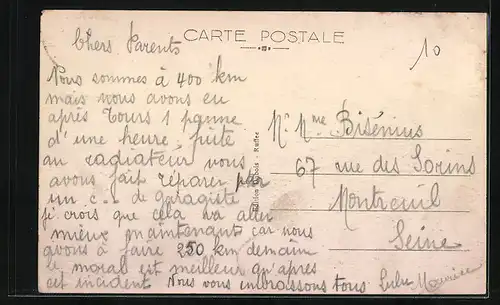 CARTE POSTALE
10
Chers Parents
Nous sommes à 400 km
mais nous avons eu
après Tours 1 panne
d'une heure fuite
au radiateur nous
avons fait réparer par
un c... de garagiste
je crois que cela va aller
mieux maintenant car nous
avons à faire 250 km demain
le moral est meilleur qu'après
cet incident Nous vous embrassons tous
Lulu Maurice
Mr Mme Bisénius
67 rue des Sorins
Montreuil
Seine
Ruffec